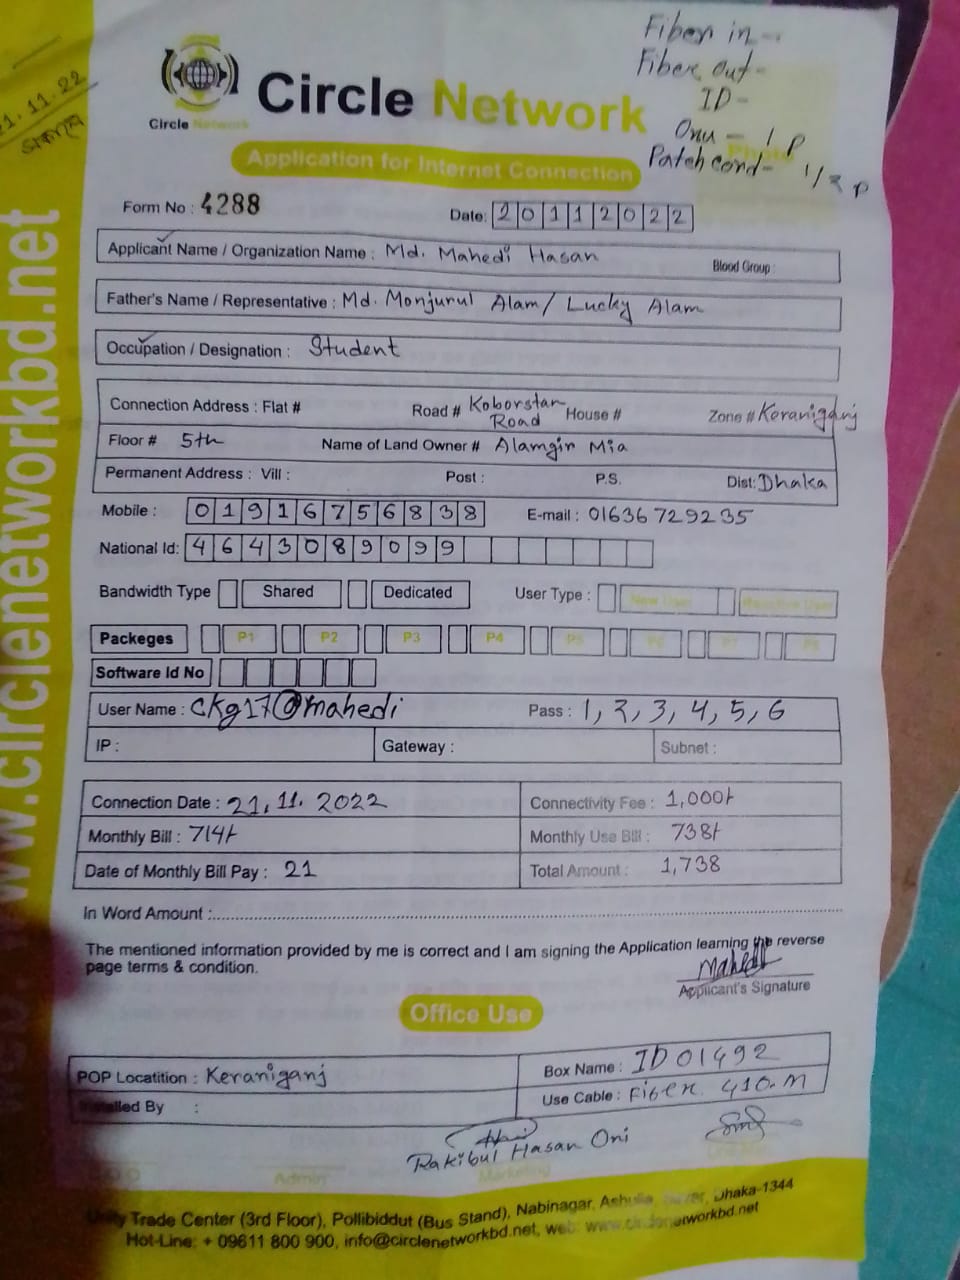 Fiber in -
Fiber out -
ID -
Onu - 1 P
Patch cord - 1/2 P
21.11.22
www.circlenetworkbd.net
Circle Network
Circle Network
Application for Internet Connection
Form No : 4288
Date: 20112022
Applicant Name / Organization Name : Md. Mahedi Hasan Blood Group :
Father's Name / Representative : Md. Monjurul Alam/ Lucky Alam
Occupation / Designation : Student
Connection Address : Flat # Road # Koborstan Road House # Zone # Keraniganj
Floor # 5th Name of Land Owner # Alamgir Mia
Permanent Address : Vill : Post : P.S. Dist: Dhaka
Mobile : 01916756838 E-mail : 01636729235
National Id: 4643089099
Bandwidth Type Shared Dedicated User Type : New User Reactive User
Packeges P1 P2 P3 P4 P5 P6 P7 P8
Software Id No
User Name : ckg17@mahedi Pass : 1, 2, 3, 4, 5, 6
IP : Gateway : Subnet :
Connection Date : 21.11.2022 Connectivity Fee : 1,000/-
Monthly Bill : 714/- Monthly Use Bill : 738/-
Date of Monthly Bill Pay : 21 Total Amount : 1,738
In Word Amount :
The mentioned information provided by me is correct and I am signing the Application learning the reverse
page terms & condition.
Mahedi
Applicant's Signature
Office Use
POP Locatition : Keraniganj Box Name : ID 01492
Installed By : Use Cable : Fiber 410.M
Rakibul Hasan Oni
Admin Marketing
Unity Trade Center (3rd Floor), Pollibiddut (Bus Stand), Nabinagar, Ashulia, Savar, Dhaka-1344
Hot-Line: + 09611 800 900, info@circlenetworkbd.net, web: www.circlenetworkbd.net